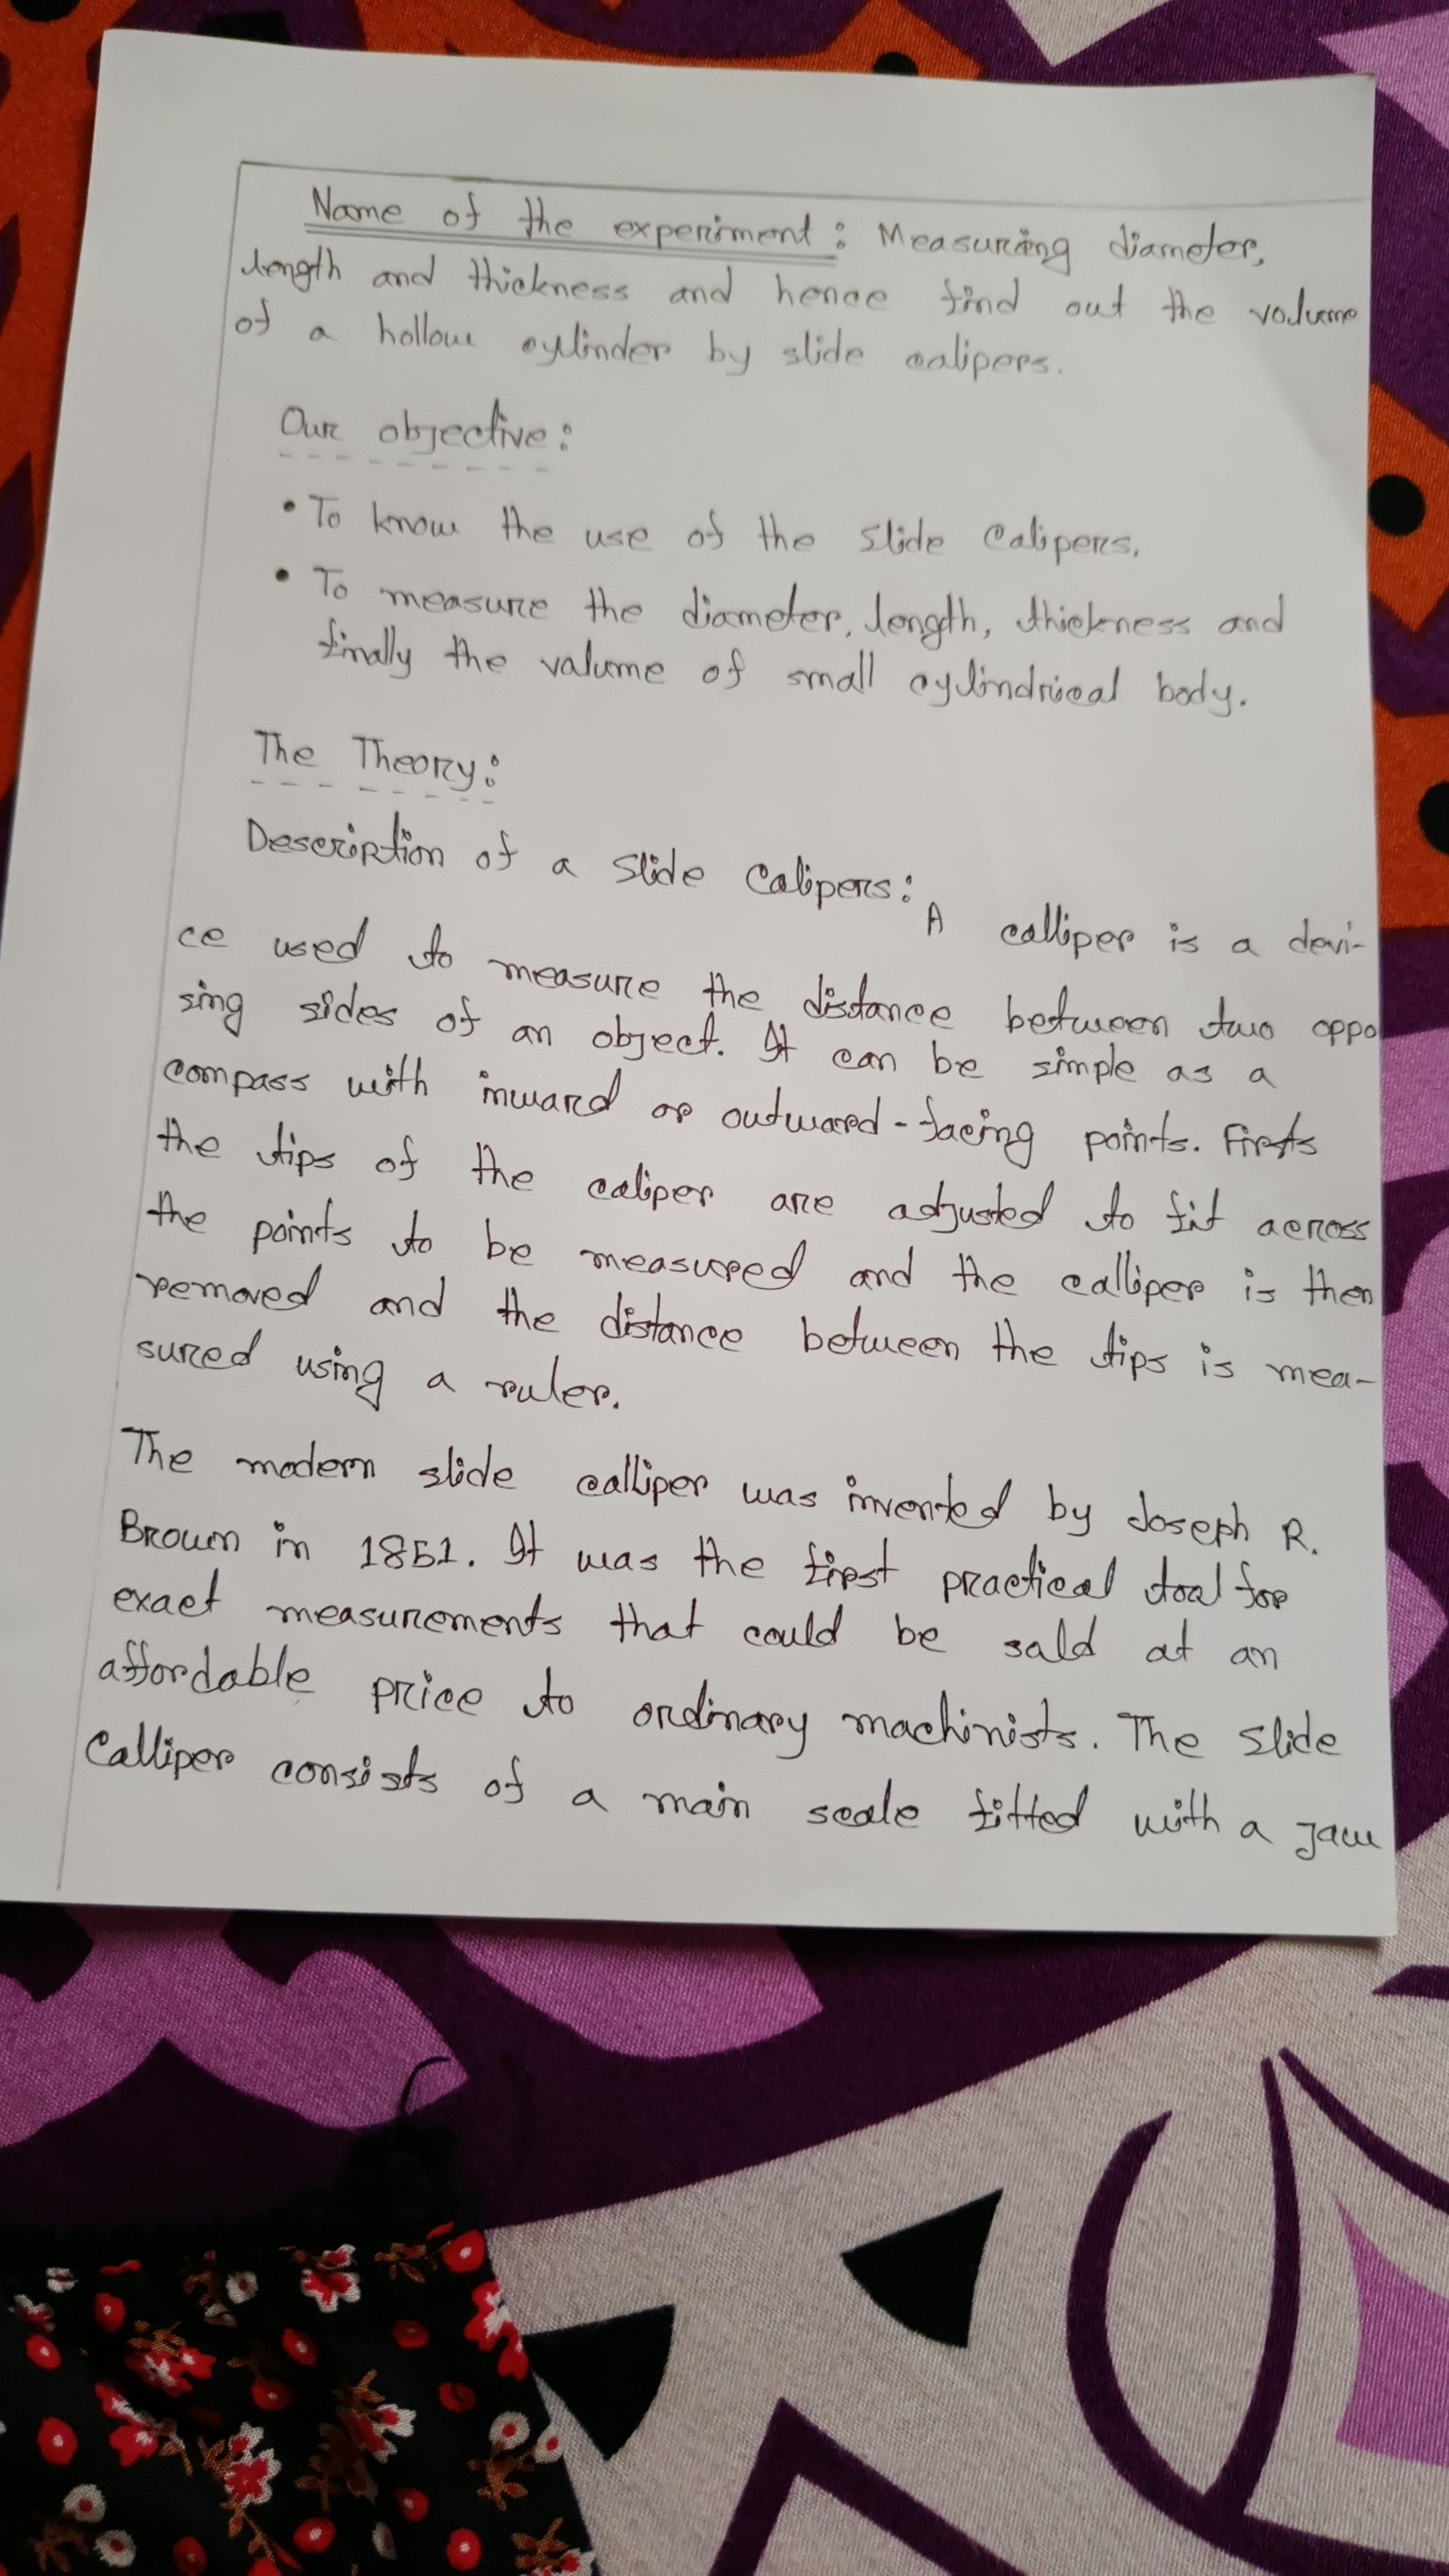 Name of the experiment: Measuring diameter,
length and thickness and hence find out the volume
of a hollow cylinder by slide calipers.
Our objective:
• To know the use of the slide calipers.
• To measure the diameter, length, thickness and
finally the valume of small cylindrical body.
The Theory:
Description of a slide calipers: A calliper is a devi-
ce used to measure the distance between two oppo
sing sides of an object. It can be simple as a
compass with inward or outward-facing points. Firsts
the tips of the caliper are adjusted to fit across
the points to be measured and the calliper is then
removed and the distance between the tips is mea-
sured using a ruler.
The modern slide calliper was invented by Joseph R.
Brown in 1851. It was the first practical toal for
exact measurements that could be sald at an
affordable price to ordinary machinists. The slide
Calliper consists of a main scale fitted with a jaw